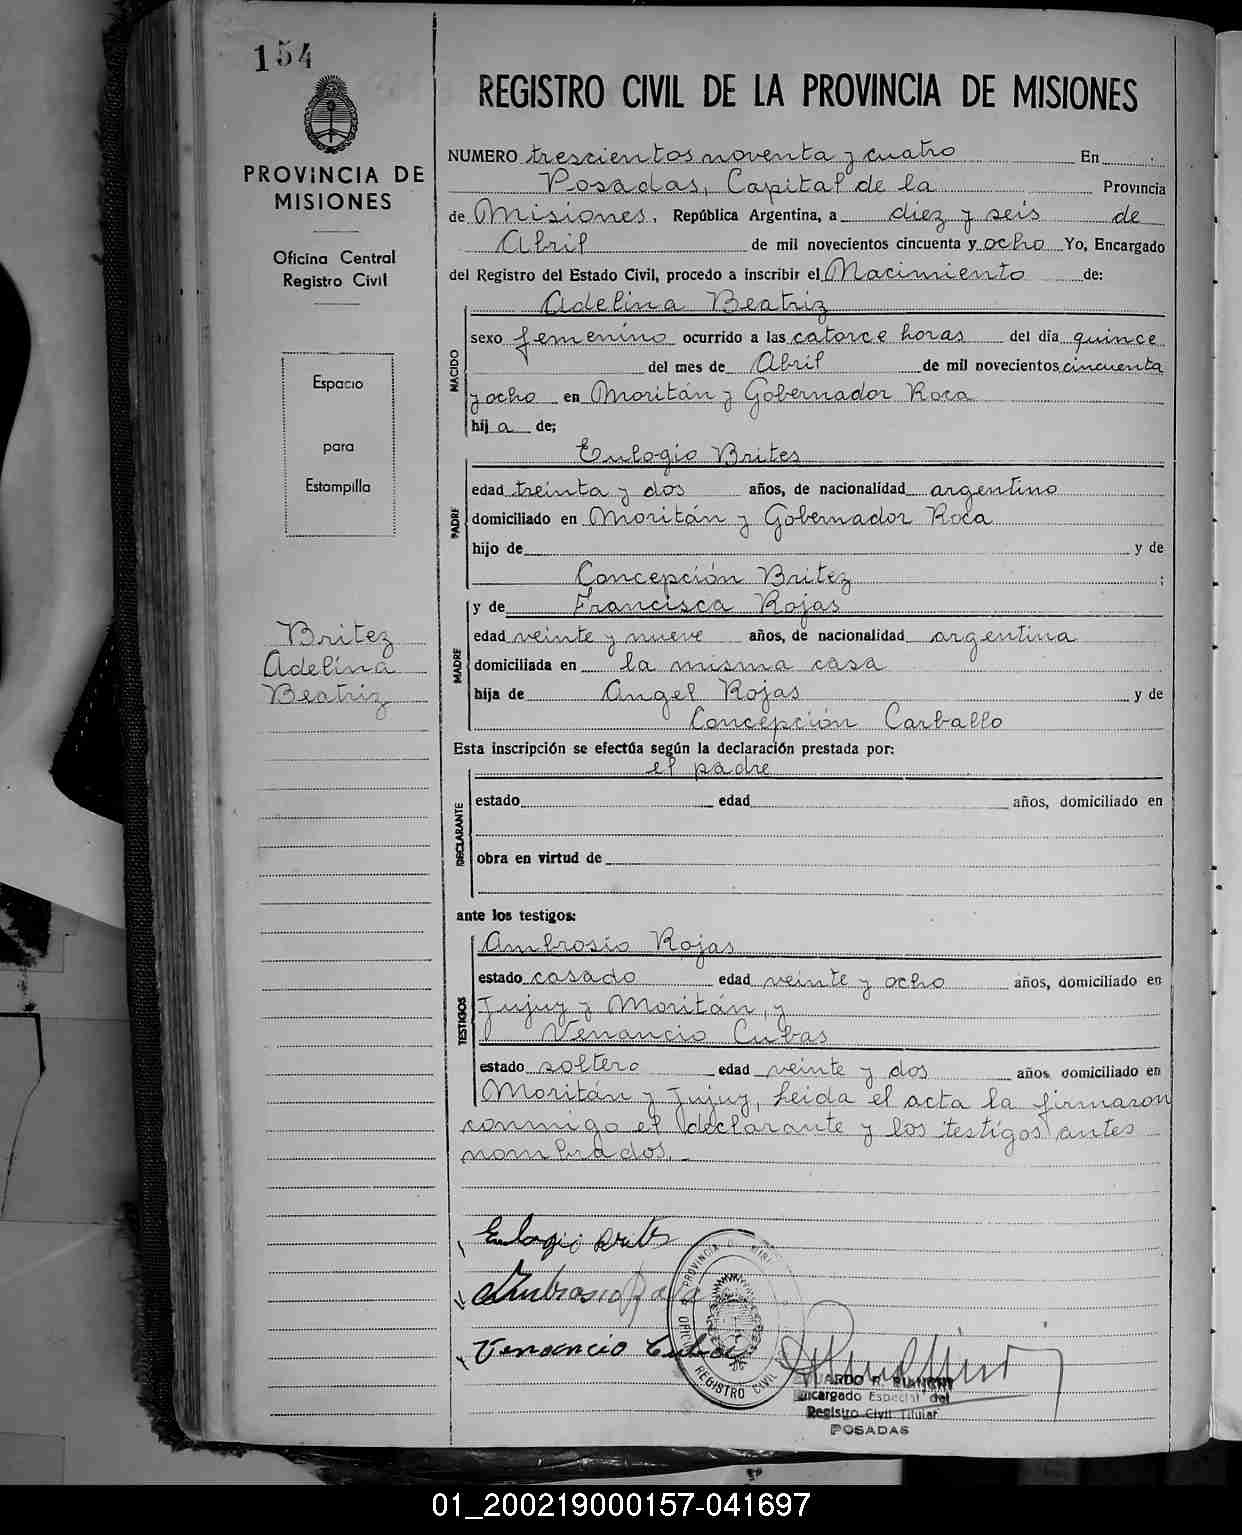 154
PROVINCIA DE
MISIONES
Oficina Central
Registro Civil
Espacio
para
Estampilla
Britez
Adelina
Beatriz
REGISTRO CIVIL DE LA PROVINCIA DE MISIONES
NUMERO trescientos noventa y cuatro En
Posadas, Capital de la Provincia
de Misiones. República Argentina, a diez y seis de
Abril de mil novecientos cincuenta y ocho Yo, Encargado
del Registro del Estado Civil, procedo a inscribir el Nacimiento de:
NACIDO
Adelina Beatriz
sexo femenino ocurrido a las catorce horas del día quince
del mes de Abril de mil novecientos cincuenta
y ocho en Moritán y Gobernador Roca
hija de;
PADRE
Eulogio Brites
edad treinta y dos años, de nacionalidad argentino
domiciliado en Moritán y Gobernador Roca
hijo de y de
Concepción Britez ;
MADRE
y de Francisca Rojas
edad veinte y nueve años, de nacionalidad argentina
domiciliada en la misma casa
hija de Angel Rojas y de
Concepción Carballo
Esta inscripción se efectúa según la declaración prestada por:
el padre
DECLARANTE
estado edad años, domiciliado en
obra en virtud de
ante los testigos:
TESTIGOS
Ambrosio Rojas
estado casado edad veinte y ocho años, domiciliado en
Jujuy y Moritán, y
Venancio Cubas
estado soltero edad veinte y dos años, domiciliado en
Moritán y Jujuy, leida el acta la firmaron
conmigo el declarante y los testigos antes
nombrados.
Eulogio Brites
Ambrosio
Venancio Cubas
PROVINCIA DE
REGISTRO CIVIL
Encargado Especial del
Registro Civil Titular
POSADAS
01_200219000157-041697